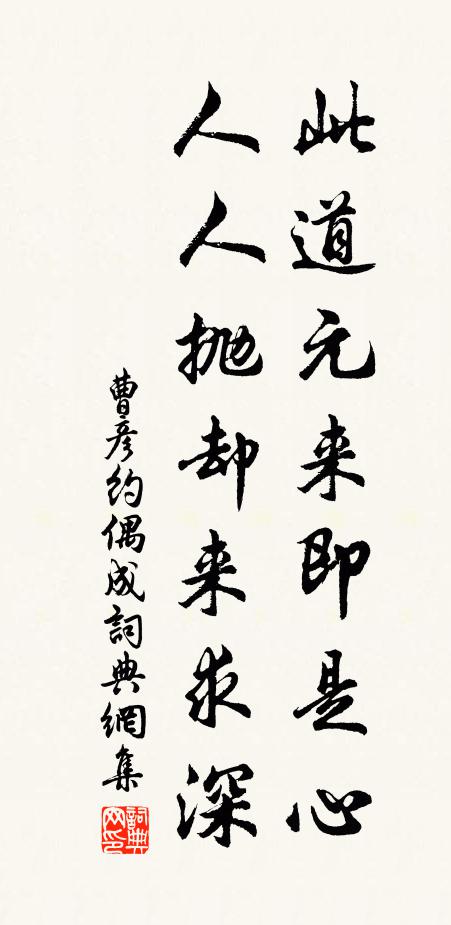 此道元来即是心
人人抛却来求深
曹彦约偶成詞典網集
詞典网印